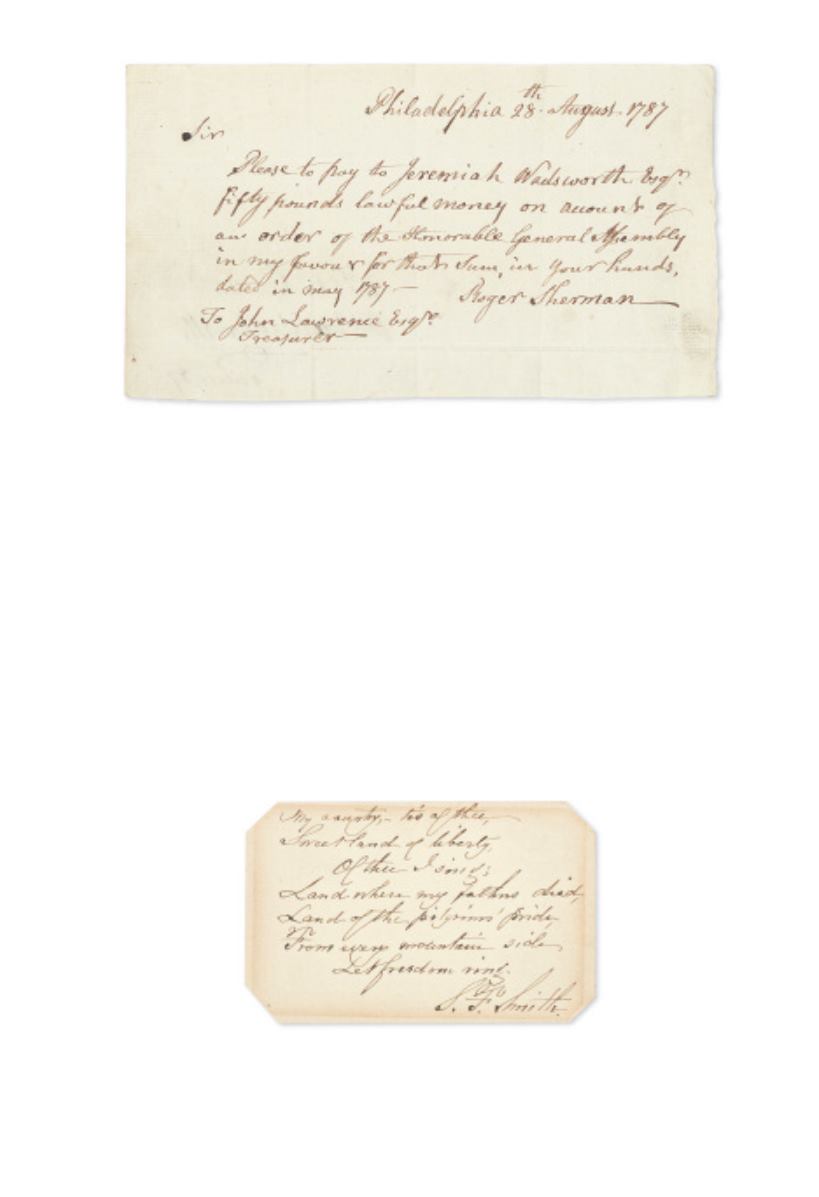 Philadelphia 28th August 1787
Sir
Please to pay to Jeremiah Wadsworth Esqr.
fifty pounds lawful money on account of
an order of the Honorable General Assembly
in my favour for that Sum, in your hands,
dated in may 1787 — Roger Sherman
To John Lawrence Esqr.
Treasurer
My country, - tis of thee,
Sweet land of liberty,
Of thee I sing;
Land where my fathers died,
Land of the pilgrims' pride,
From every mountain side
Let freedom ring.
S. F. Smith.